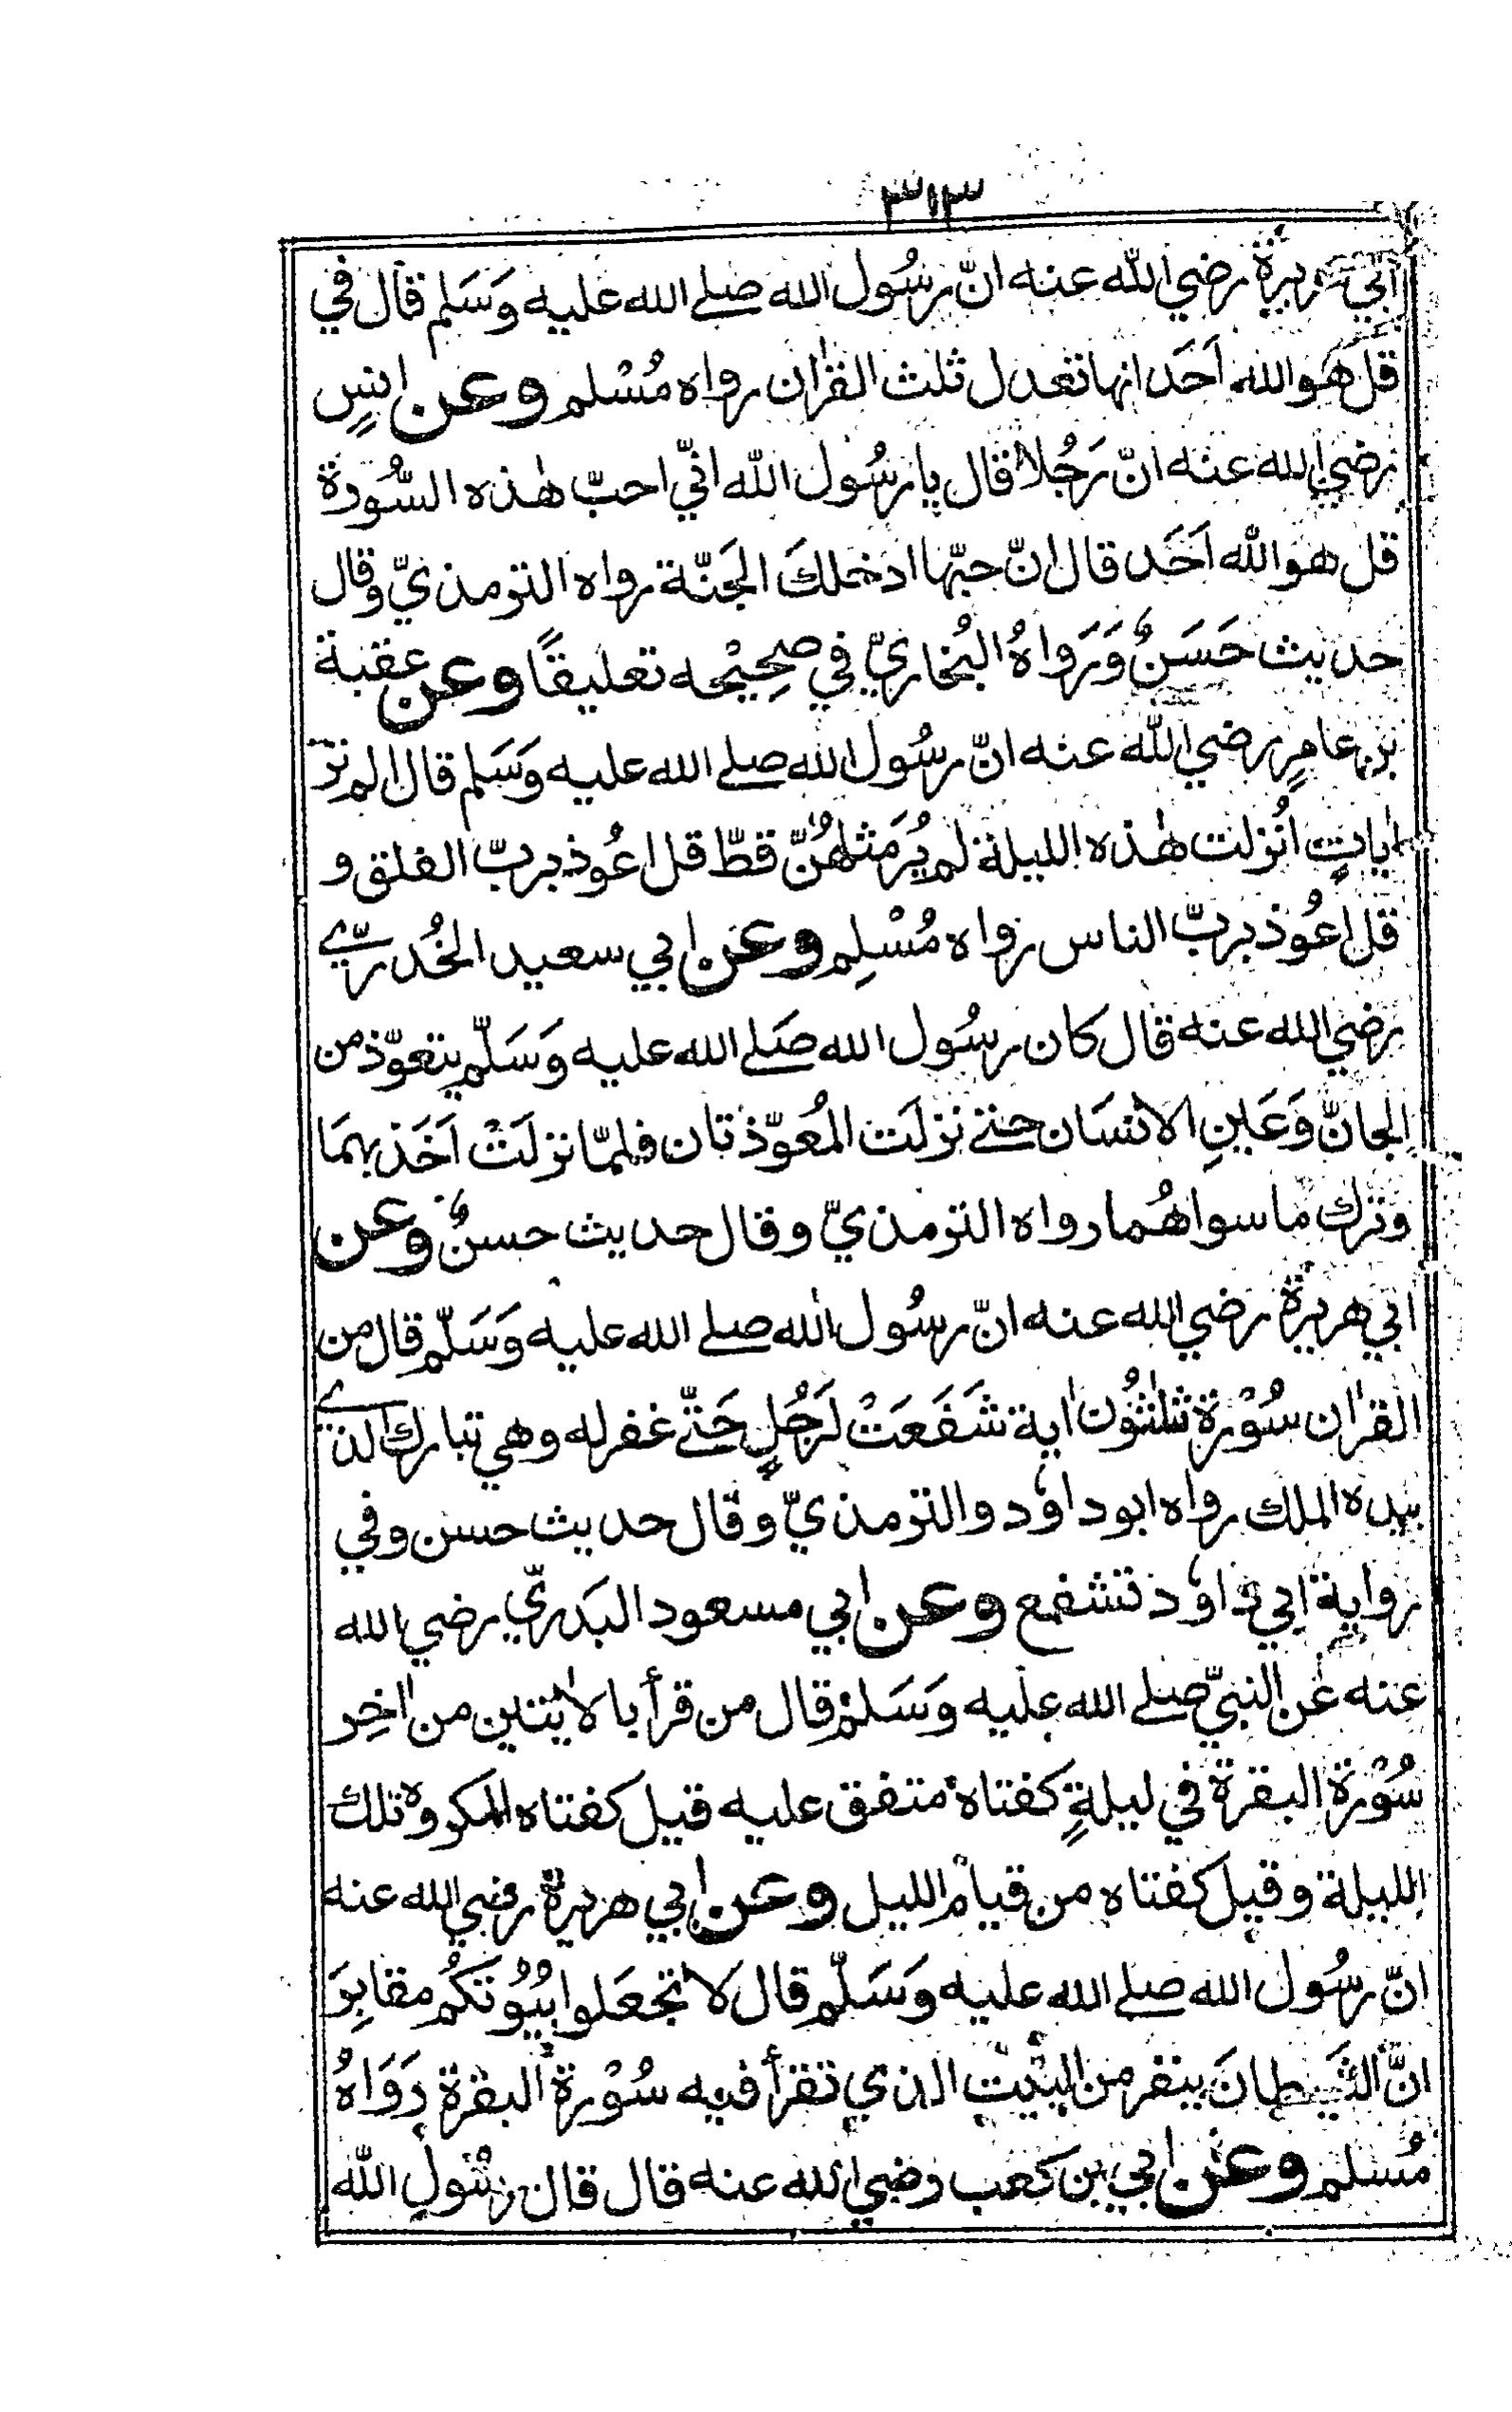 ٣١٣
أبي هريرة رضي الله عنه انّ رسُول الله صلے الله عليه وَسَلم قال في
قل هو الله اَحَد انها تعدل ثلث القرٰان رواه مُسْلم وعن انسٍ
رضي الله عنه انّ رَجُلا قال يا رسُول الله انّي احبّ هٰذه السُّورة
قل هو الله اَحَد قال انّ حبّها ادخلكَ الجَنّة رواه الترمذيّ وقال
حديث حَسَنٌ وَرَواهُ البُخاريّ في صحِيْحه تعليقًا وعن عقبة
بن عامرٍ رضي الله عنه انّ رسُول الله صلے الله عليه وَسَلم قال الم تر
اٰياتٍ اُنزلت هٰذه الليلة لم يُرَ مثلهُنّ قطّ قل اعُوذ بربّ الفلق و
قل اعُوذ بربّ الناس رواه مُسْلِم وعن ابي سعيد الخُدريّ
رضي الله عنه قال كان رسُول الله صَلے الله عليه وَسَلّم يتعوّذ من
الجانّ وَعَينِ الانسَان حتے نزلَت المُعوّذتان فلمّا نزلَتْ اَخَذ بهمَا
وترك ما سواهُما رواه الترمذيّ وقال حديث حسنٌ وعن
ابي هريرة رضي الله عنه انّ رسُول الله صلے الله عليه وَسَلّم قال من
القرٰان سُوْرة ثلٰثُون اٰية شَفَعَتْ لرَجُلٍ حَتّے غفر له وهي تبارك الذے
بيده الملك رواه ابو داوٗد والترمذيّ وقال حديث حسن وفي
رواية ابي داوٗد تشفع وعن ابي مسعود البَدريّ رضي الله
عنه عن النبيّ صلے الله عليه وَسَلمْ قال من قرأ بالاٰيتين من اٰخِر
سُوْرة البقرة في ليلةٍ كفتاه متفق عليه قيل كفتاه المكروه تلك
الليلة وقيل كفتاه من قيام الليل وعن ابي هريرة رضي الله عنه
انّ رسُول الله صلے الله عليه وَسَلّم قال لا تجعَلوا بيُوْتَكُم مقابِرَ
انّ الشَّيطانَ ينفر من البَيْت الذي تقرأ فيه سُوْرة البقرة رَوَاهُ
مُسلم وعن ابي بن كعب رضي الله عنه قال قال رسُول الله